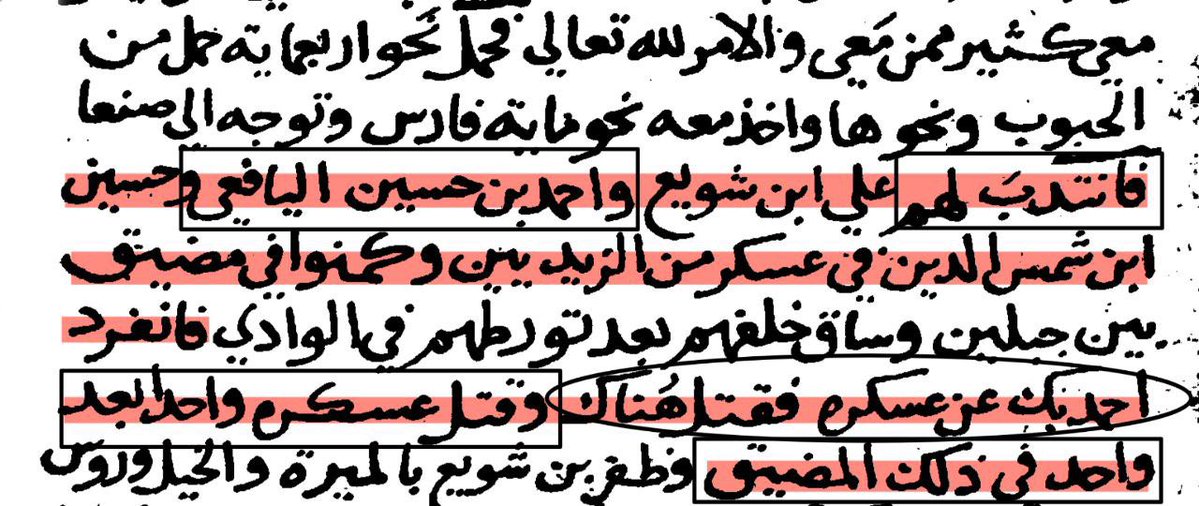 معي كثير ممن مَعي والامر لله تعالي فحمل نَحوا ربعماية حمل من
الحبوب ونحوها واخذ معه نحو ماية فارس وتوجه الي صنعا
فانتدبَ لهم علي ابن شويع واحمد بن حسين اليافعي وحسين
ابن شمس الدين في عسكر من الزيديين وكمنوا في مضيق
بين جبلين وساق خلفهم بعد تورطهم في الوادي فانفرد
احمد بك عن عسكره فقتل هُناك وقتل عسكره واحدا بعد
واحد في ذلك المضيق وظفر بن شويع بالميرة والخيل وروس